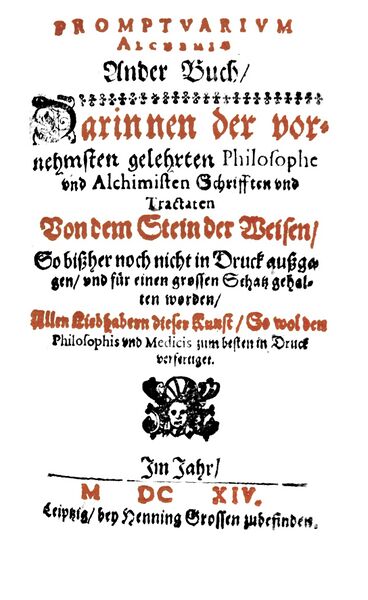 PROMPTVARIVM
ALCHEMIÆ
Ander Buch/
Darinnen der vor-
nehmsten gelehrten Philosophe
vnd Alchimisten Schrifften vnd
Tractaten
Von dem Stein der Weisen/
So bißher noch nicht in Druck außgā
gen/ vnd für einen grossen Schatz gehal-
ten worden/
Allen Liebhabern dieser Kunst/ So wol den
Philosophis vnd Medicis zum besten in Druck
verfertiget.
Im Jahr/
M DC XIV.
Leiptzig/ bey Henning Grossen zubefinden.